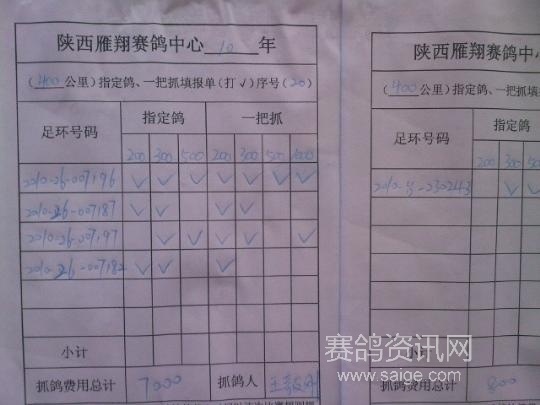 陕西雁翔赛鸽中心 10 年
(400公里)指定鸽、一把抓填报单(打√)序号(20)
足环号码 指定鸽 一把抓
200 300 500 200 300 500 1000
2010-26-007196 √ √ √ √ √ √ √
2010-26-007187 √ √ √ √
2010-26-007197 √ √ √ √ √
2010-26-007182 √ √ √
小计
抓鸽费用总计 7000 抓鸽人
陕西雁翔赛鸽中心
(400公里)指定鸽、一把抓填
足环号码 指定鸽
200 300 500
√ √
小计
抓鸽费用总计 800
赛鸽资讯网
www.saige.com